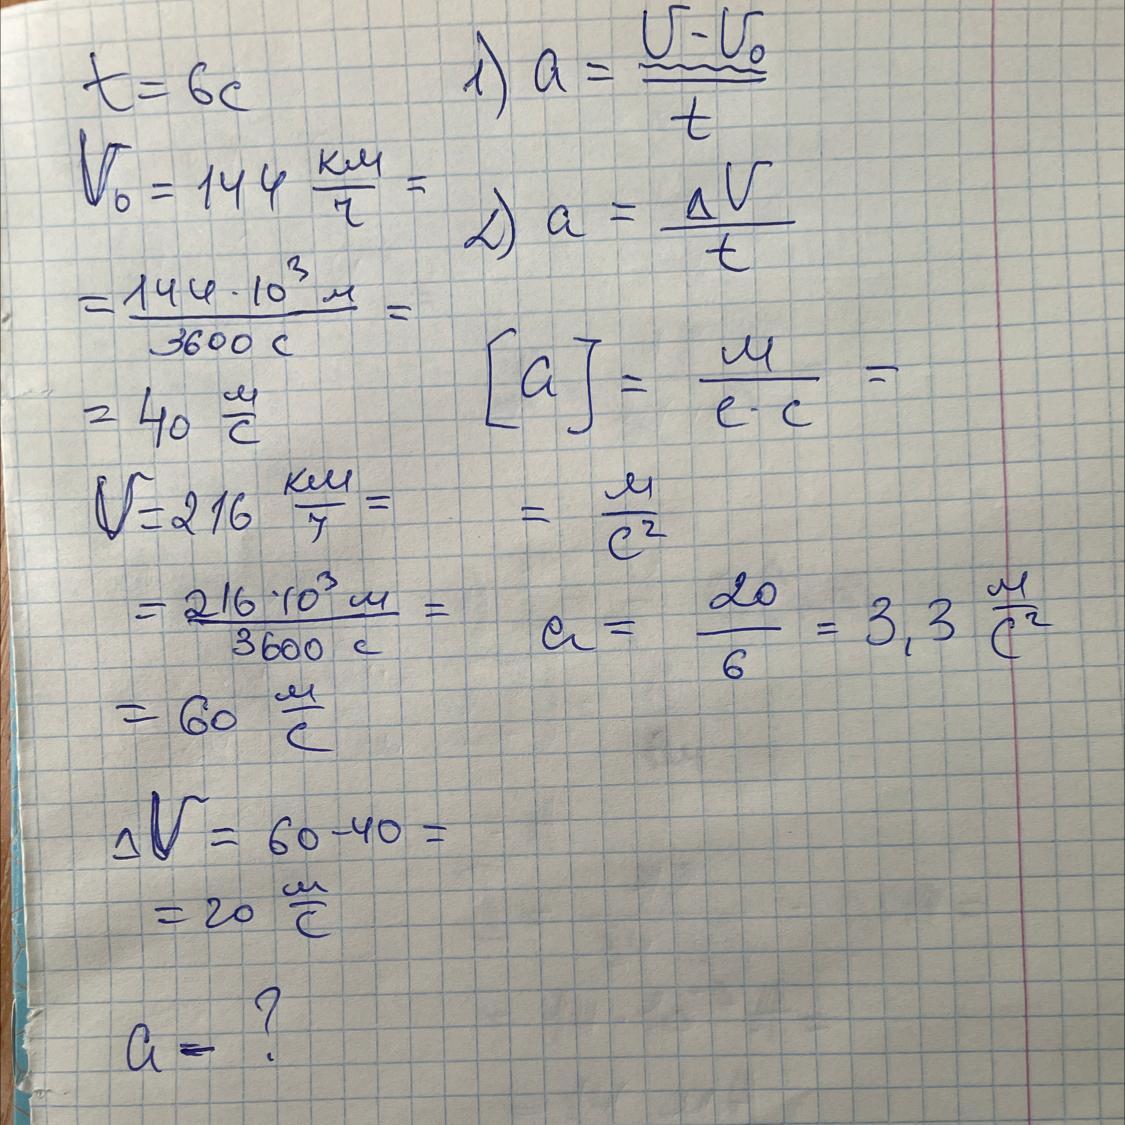 t = 6с
V₀ = 144 км/ч =
= 144·10³ м/3600 с =
= 40 м/с
V = 216 км/ч =
= 216·10³ м/3600 с =
= 60 м/с
ΔV = 60-40 =
= 20 м/с
a - ?
1) a = V-V₀/t
2) a = ΔV/t
[a] = м/с·с =
= м/с²
a = 20/6 = 3,3 м/с²